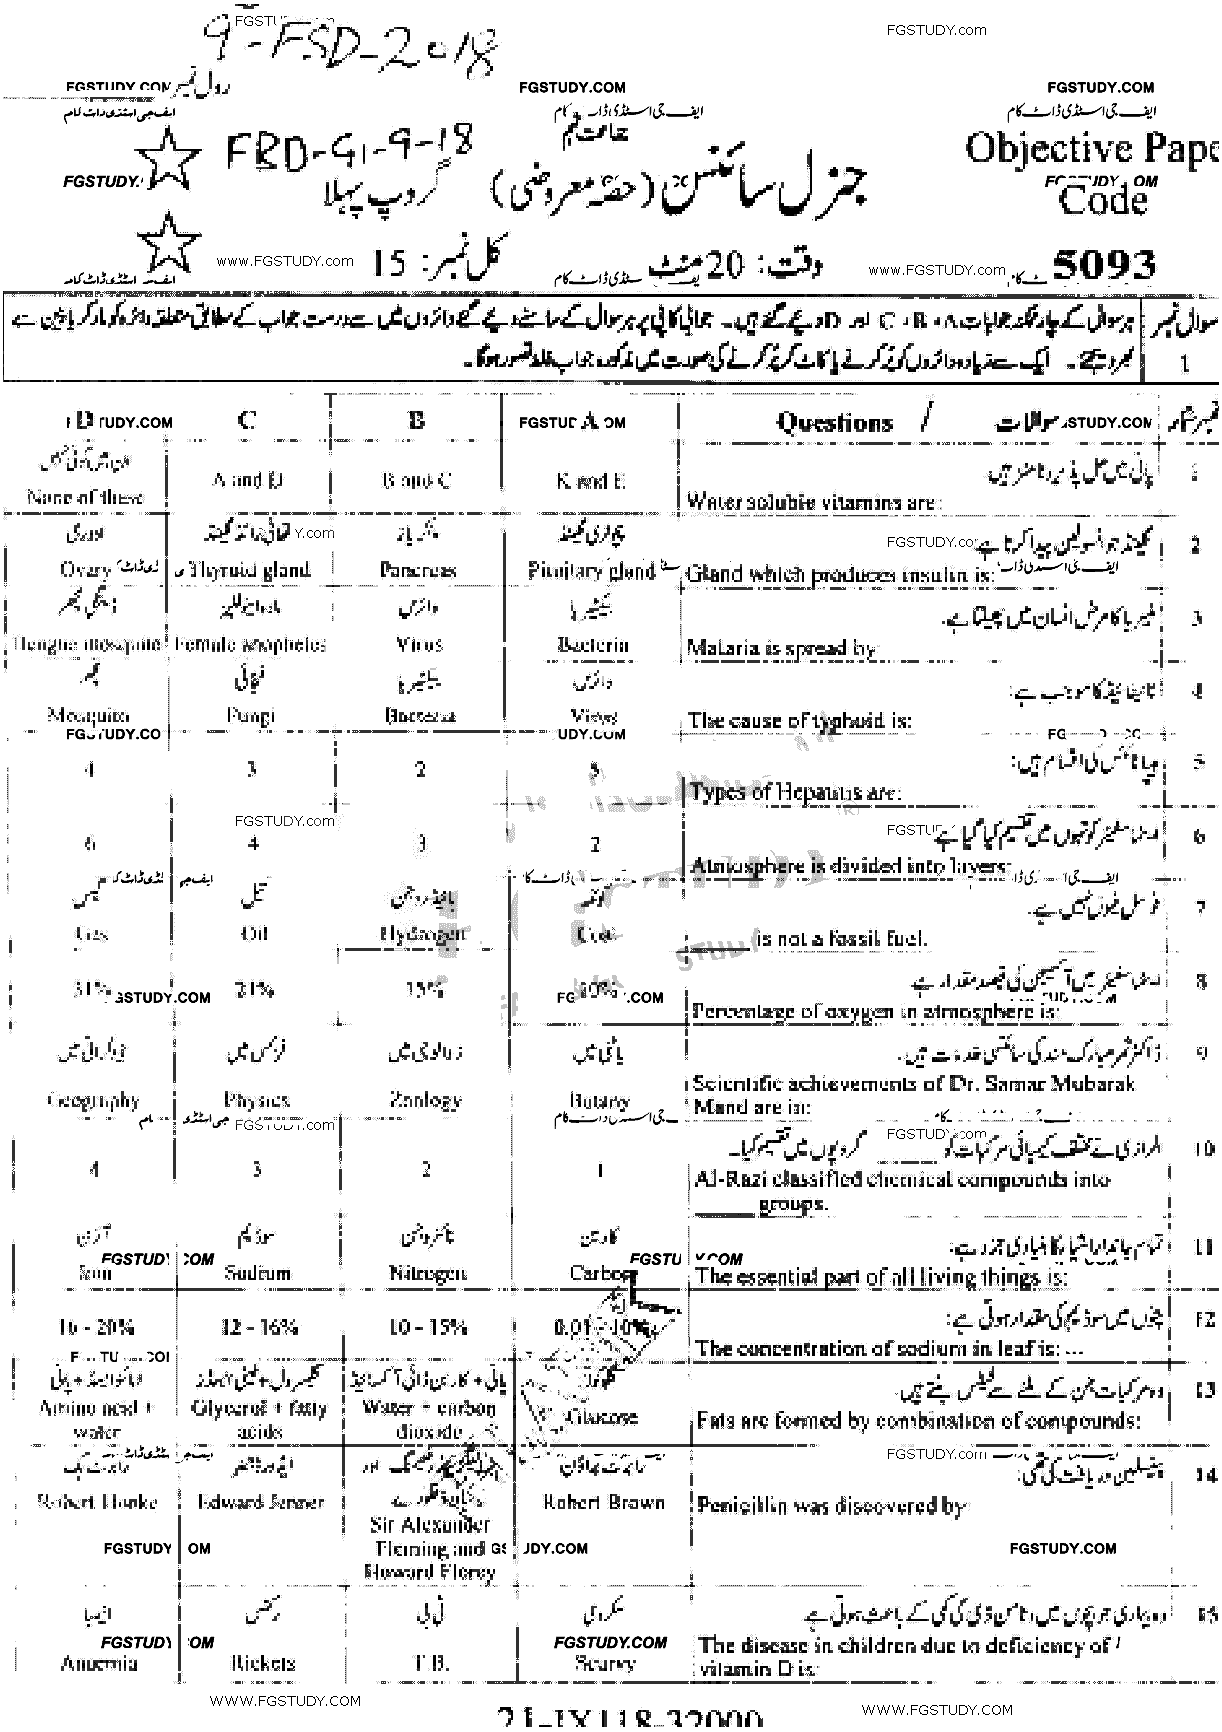 FGSTUDY.com
9-FSD-2018
FGSTUDY.com
رول نمبر
FGSTUDY.COM
FGSTUDY.COM
FGSTUDY.COM
ایف جی اسٹڈی ڈاٹ کام
ایف جی اسٹڈی ڈاٹ کام
ایف جی اسٹڈی ڈاٹ کام
جماعت نہم
FBD-G1-9-18
Objective Pape
جنرل سائنس (حصہ معروضی)
گروپ پہلا
Code
www.FGSTUDY.com
کل نمبر: 15
وقت: 20 منٹ
www.FGSTUDY.com
5093
سوال نمبر 1
ہر سوال کے چار ممکنہ جوابات A، B، C اور D دیے گئے ہیں۔ جوابی کاپی پر ہر سوال کے سامنے دیے گئے دائروں میں سے درست جواب کے مطابق متعلقہ دائرہ کو مارکر یا پین سے
بھر دیجئے۔ ایک سے زیادہ دائروں کو پُر کرنے یا کاٹ کر پُر کرنے کی صورت میں مذکورہ جواب غلط تصور ہوگا۔
D C B A Questions / سوالات نمبر شمار
ان میں کوئی نہیں
پانی میں حل پذیر وٹامنز ہیں:
1
None of these A and D B and C K and E Water soluble vitamins are:
اووری تھائی رائڈ گلینڈ پنکریاز پچوٹری گلینڈ
گلینڈ جو انسولین پیدا کرتا ہے:
2
Ovary Thyroid gland Pancreas Pituitary gland Gland which produces insulin is:
ڈینگی مچھر مادہ اینوفلیز وائرس بیکٹیریا
ملیریا کا مرض انسان میں پھیلتا ہے۔
3
Dengue mosquito Female anopheles Virus Bacteria Malaria is spread by:
مچھر فنجائی بیکٹیریا وائرس
ٹائیفائیڈ کا موجب ہے:
4
Mosquito Fungi Bacteria Virus The cause of typhoid is:
ہیپاٹائٹس کی اقسام ہیں:
5
4 3 2 5 Types of Hepatitis are:
اٹماسفیئر کو تہوں میں تقسیم کیا گیا ہے
6
6 4 3 2 Atmosphere is divided into layers:
گیس تیل ہائیڈروجن کوئلہ
فوسل فیول نہیں ہے۔
7
Gas Oil Hydrogen Coal ______ is not a fossil fuel.
اٹماسفیئر میں آکسیجن کی فیصد مقدار ہے
8
31% 21% 15% 10% Percentage of oxygen in atmosphere is:
جیوگرافی میں فزکس میں زوالوجی میں باٹنی میں
ڈاکٹر ثمر مبارک مند کی سائنسی خدمات ہیں۔
9
Geography Physics Zoology Botany Scientific achievements of Dr. Samar Mubarak
Mand are in:
الرازی نے مختلف کیمیائی مرکبات کو ______ گروپوں میں تقسیم کیا۔
10
4 3 2 1 Al-Razi classified chemical compounds into
______ groups.
آئرن سوڈیم نائٹروجن کاربن
تمام جاندار اشیاء کا بنیادی جزو ہے:
11
Iron Sodium Nitrogen Carbon The essential part of all living things is:
پتوں میں سوڈیم کی مقدار ہوتی ہے:
12
16 - 20% 12 - 16% 10 - 15% 0.01 - 10% The concentration of sodium in leaf is: ...
امائنو ایسڈ + پانی گلیسرول + فیٹی ایسڈز پانی + کاربن ڈائی آکسائیڈ گلوکوز
وہ مرکبات جن کے ملنے سے فیٹس بنتے ہیں۔
13
Amino acid + water Glycerol + fatty acids Water + carbon dioxide Glucose Fats are formed by combination of compounds:
رابرٹ ہک ایڈورڈ جینر رابرٹ براؤن
پنسلین دریافت کی تھی:
14
Robert Hooke Edward Jenner Sir Alexander Fleming and Howard Florey Robert Brown Penicillin was discovered by:
FGSTUDY.COM
انیمیا رکٹس ٹی بی سکروی
وہ بیماری جو بچوں میں وٹامن ڈی کی کمی کے باعث ہوتی ہے
15
Anaemia Rickets T.B. Scurvy The disease in children due to deficiency of
vitamin D is:
WWW.FGSTUDY.COM
WWW.FGSTUDY.COM
21-IX118-32000